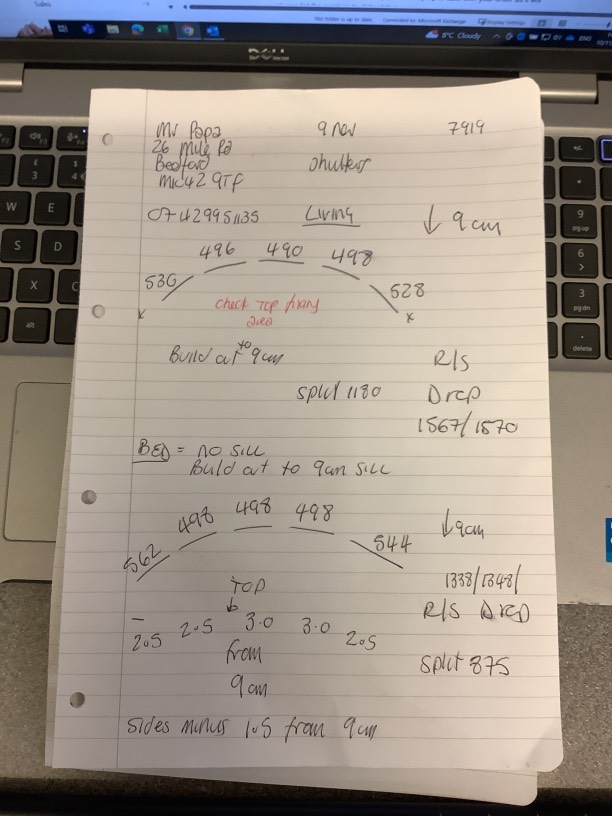 This folder is up to date. Connected to: Microsoft Exchange Display Settings
8°C Cloudy
DELL
Mr Papa 9 nov 7919
26 Mile Rd
Bedford Shutters
MK42 9TF
07429951135 Living ↓ 9cm
496 490 498
530 528
x x
Check Top fixing
area
Build out to 9cm R/S
split 1180 Drop
1567/1570
BED = no sill
Build out to 9cm sill
498 498 498 ↓9cm
562 544
TOP 1338/1348/
2.5 2.5 3.0 3.0 2.5 R/S Drop
from split 875
9cm
sides minus 1.5 from 9cm